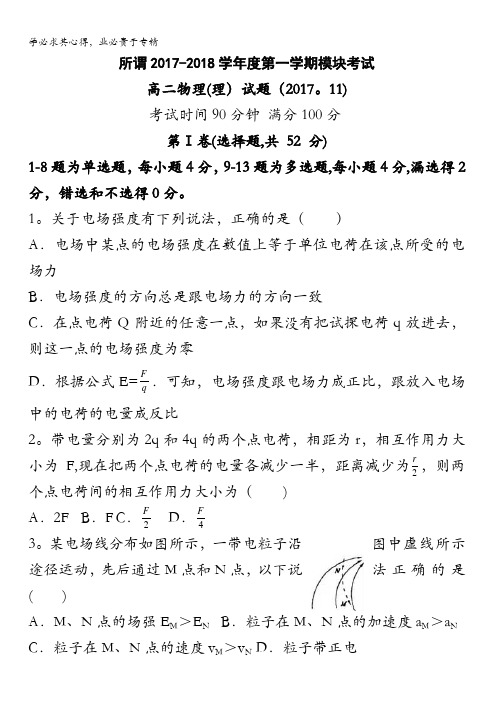 学必求其心得，业必贵于专精
所谓2017-2018学年度第一学期模块考试
高二物理(理）试题（2017。11)
考试时间90分钟 满分100分
第Ⅰ卷(选择题,共 52 分)
1-8题为单选题，每小题4分，9-13题为多选题,每小题4分,漏选得2
分，错选和不选得0分。
1。关于电场强度有下列说法，正确的是（ ）
A．电场中某点的电场强度在数值上等于单位电荷在该点所受的电
场力
B．电场强度的方向总是跟电场力的方向一致
C．在点电荷Q附近的任意一点，如果没有把试探电荷q放进去，
则这一点的电场强度为零
D．根据公式E=F/q．可知，电场强度跟电场力成正比，跟放入电场
中的电荷的电量成反比
2。带电量分别为2q和4q的两个点电荷，相距为r，相互作用力大
小为F,现在把两个点电荷的电量各减少一半，距离减少为r/2，则两
个点电荷间的相互作用力大小为（ )
A．2F B．F C．F/2 D．F/4
3。某电场线分布如图所示，一带电粒子沿 图中虚线所示
途径运动，先后通过M点和N点，以下说 法正确的是
( ）
N
M
A．M、N点的场强E_M＞E_N B．粒子在M、N点的加速度a_M＞a_N
C．粒子在M、N点的速度v_M＞v_N D．粒子带正电